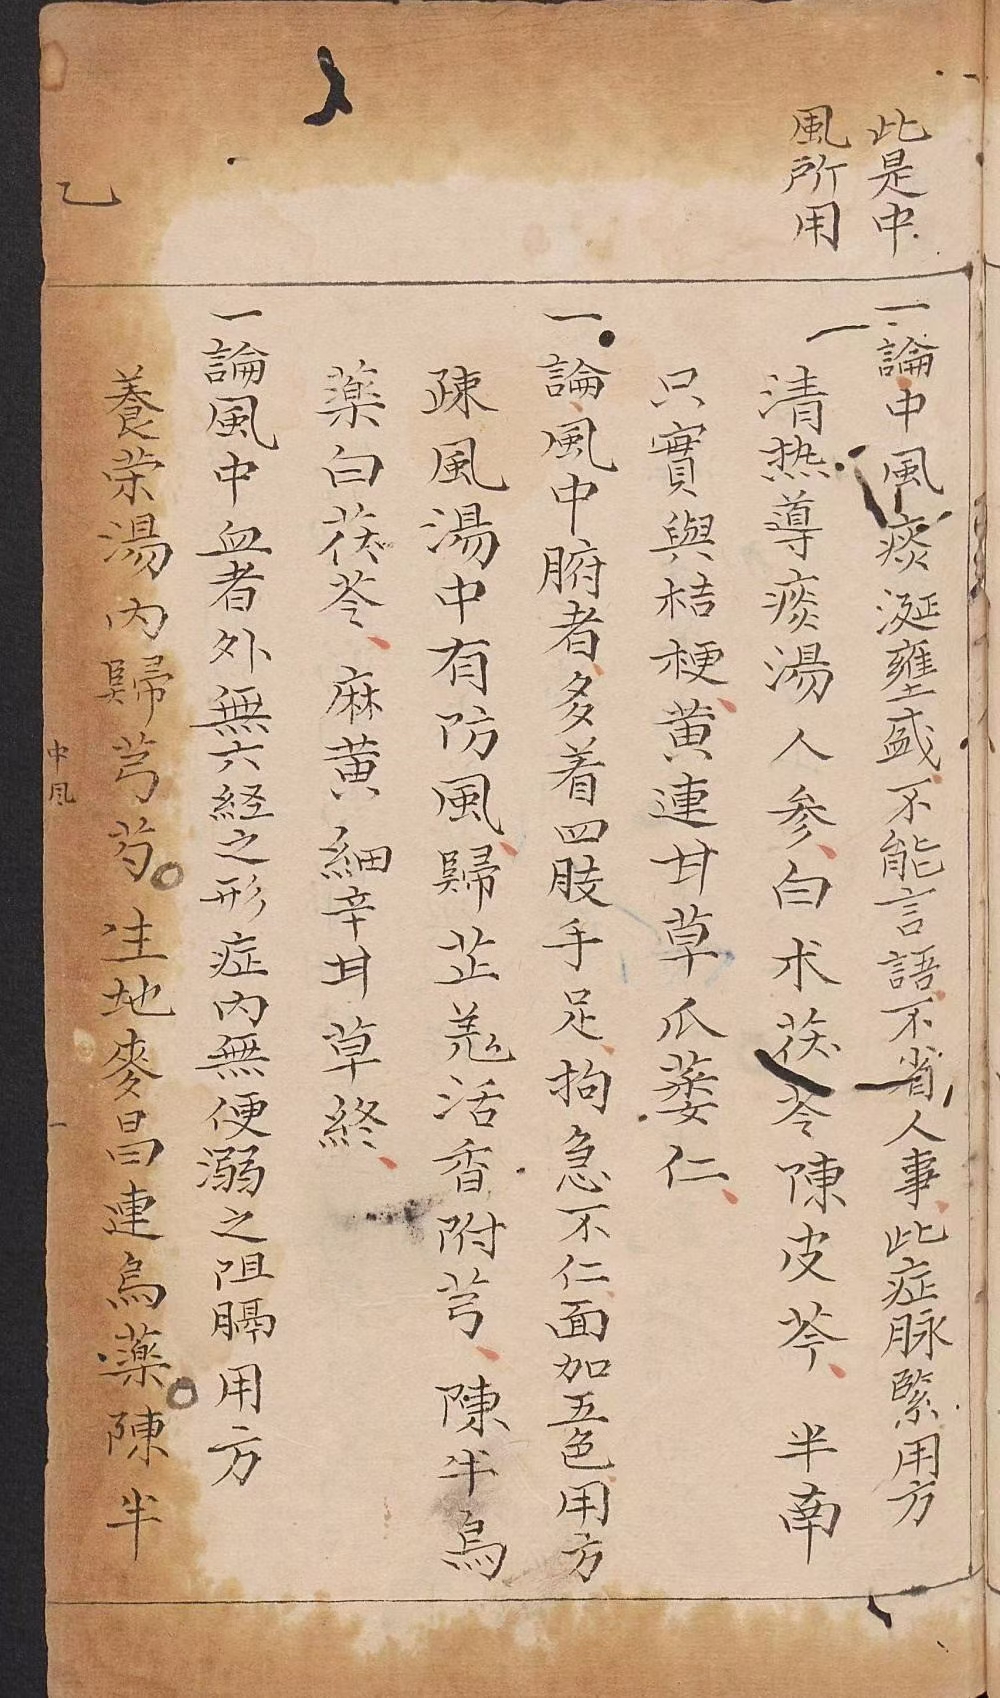 此是中
風所用
一論中風痰涎壅盛不能言語不省人事此症脉緊用方
清热導痰湯人參白术茯苓陳皮芩半南
只實與桔梗黄連甘草爪蔞仁
一論風中腑者多着四肢手足拘急不仁面加五色用方
疎風湯中有防風歸芷羗活香附芎陳半烏
薬白茯苓麻黄細辛甘草終
一論風中血者外無六経之形症內無便溺之阻膈用方
養荣湯內歸芎芍生地麥昌連烏藥陳半
乙
中风
一